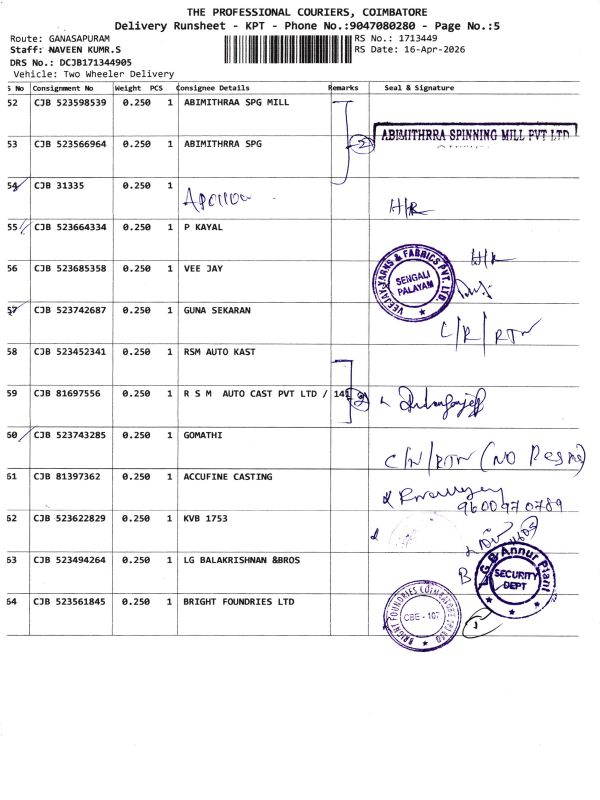 THE PROFESSIONAL COURIERS, COIMBATORE
Delivery Runsheet - KPT - Phone No.:9047080280 - Page No.:5
Route: GANASAPURAM
RS No.: 1713449
Staff: NAVEEN KUMR.S
RS Date: 16-Apr-2026
DRS No.: DCJB171344905
Vehicle: Two Wheeler Delivery
S No Consignment No Weight PCS Consignee Details Remarks Seal & Signature
52 CJB 523598539 0.250 1 ABIMITHRAA SPG MILL
ABIMITHRRA SPINNING MILL PVT LTD
53 CJB 523566964 0.250 1 ABIMITHRRA SPG 2
54 CJB 31335 0.250 1
Apollo
H/R
55 CJB 523664334 0.250 1 P KAYAL
H/R
56 CJB 523685358 0.250 1 VEE JAY
VEEJAY YARNS & FABRICS PVT. LTD.
SENGALI
PALAYAM
57 CJB 523742687 0.250 1 GUNA SEKARAN
C/R/RTN
58 CJB 523452341 0.250 1 RSM AUTO KAST
59 CJB 81697556 0.250 1 R S M AUTO CAST PVT LTD / 141 2
60 CJB 523743285 0.250 1 GOMATHI
C/N/RTN (NO
61 CJB 81397362 0.250 1 ACCUFINE CASTING
9600970789
62 CJB 523622829 0.250 1 KVB 1753
63 CJB 523494264 0.250 1 LG BALAKRISHNAN &BROS
B
L.G.B Annur Plant
SECURITY
DEPT
64 CJB 523561845 0.250 1 BRIGHT FOUNDRIES LTD
BRIGHT FOUNDRIES COIMBATORE
CBE - 107
1